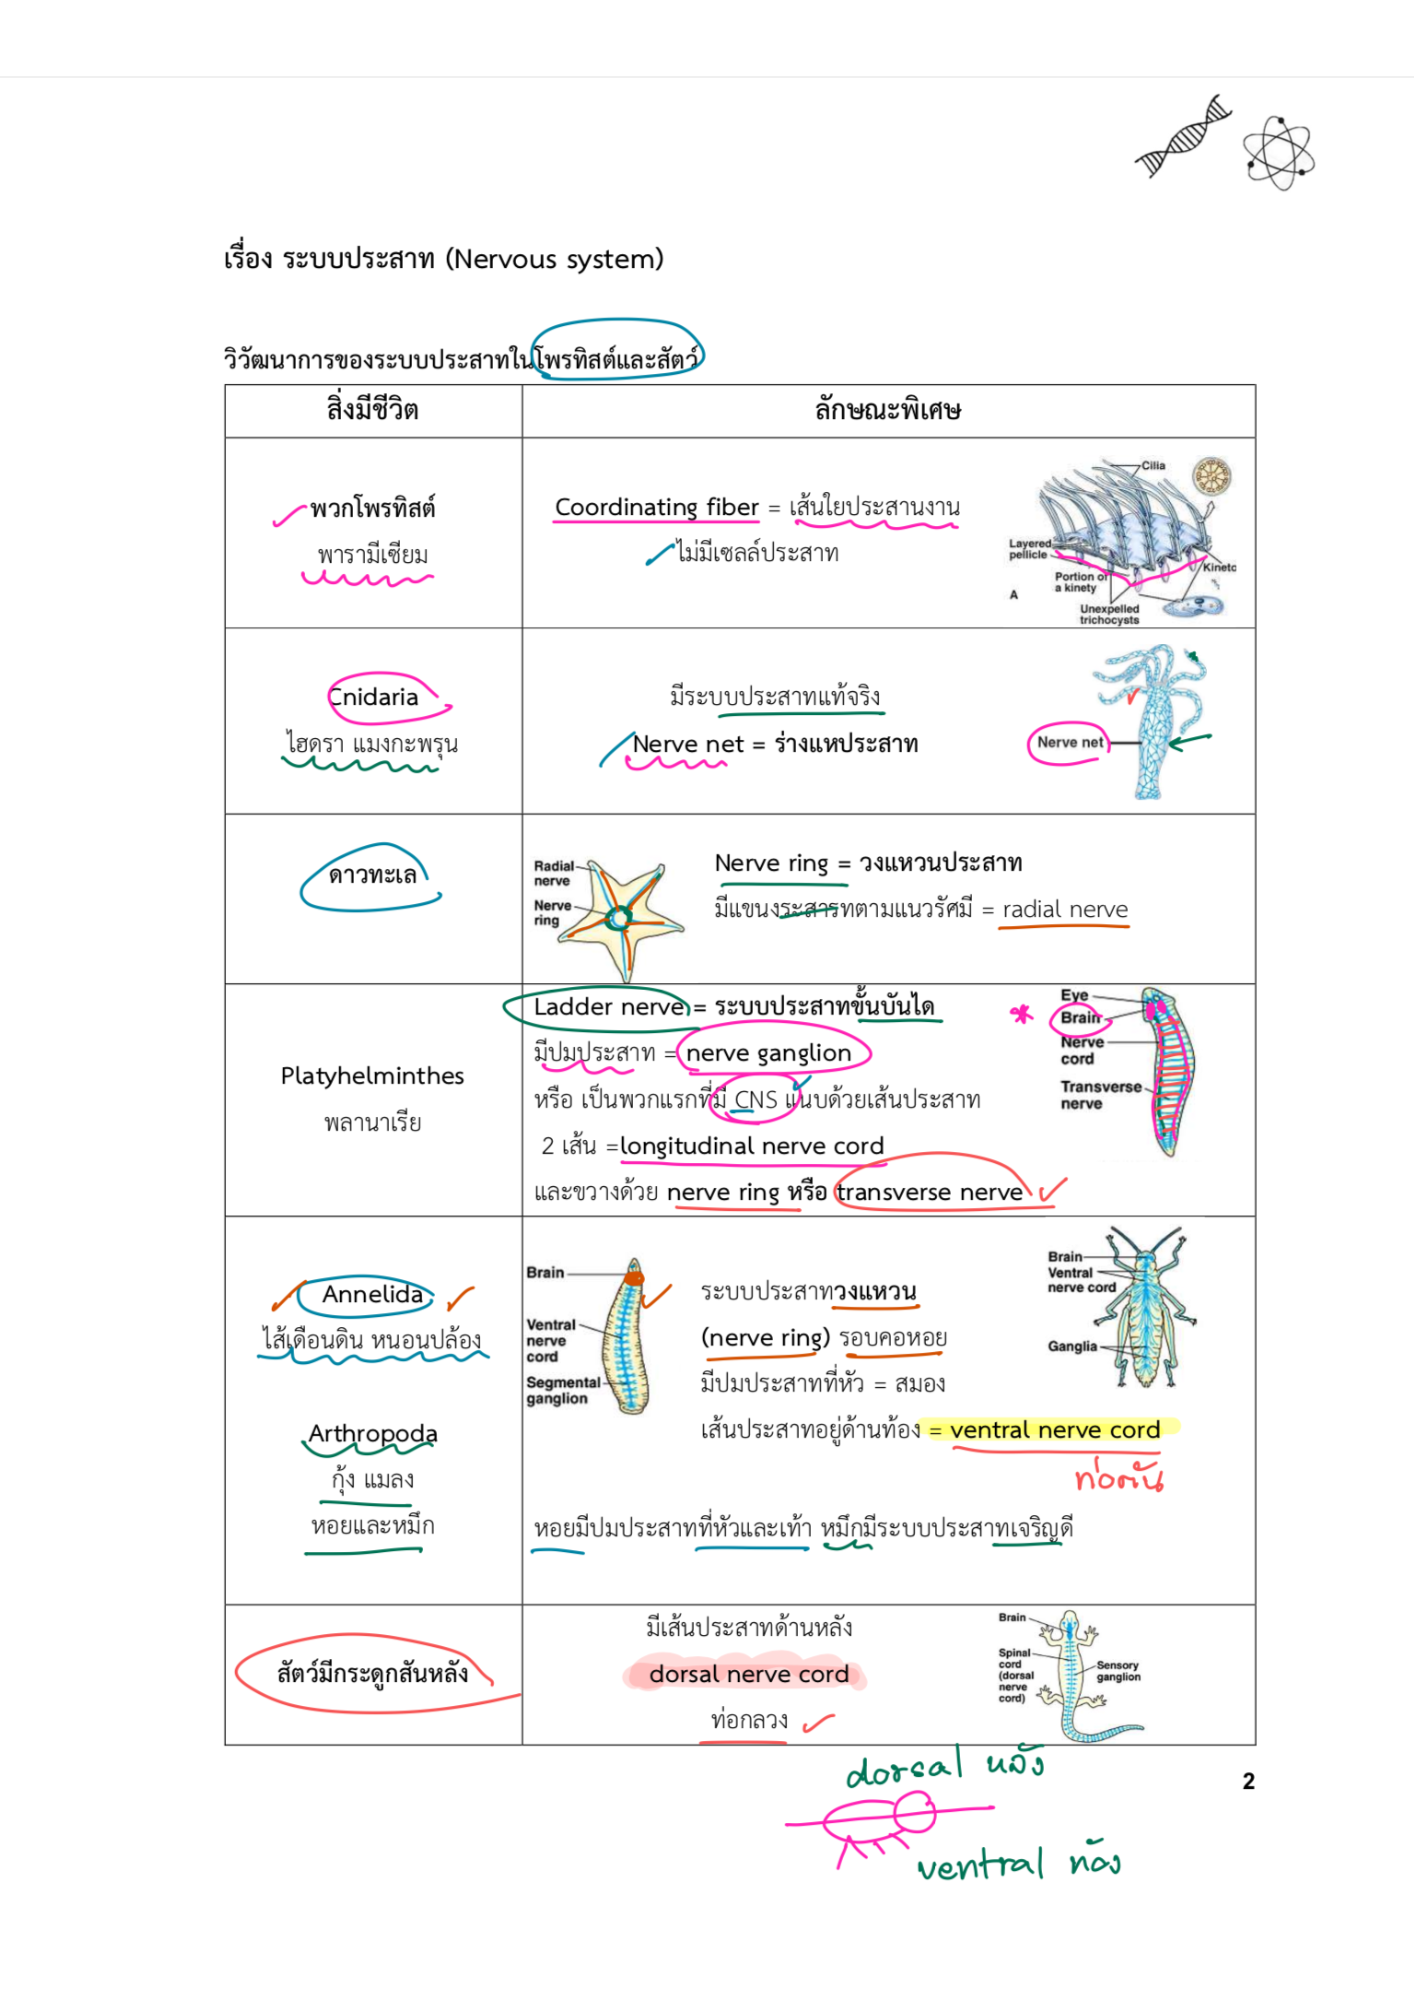 เรื่อง ระบบประสาท (Nervous system)
วิวัฒนาการของระบบประสาทในโพรทิสต์และสัตว์
สิ่งมีชีวิต
ลักษณะพิเศษ
พวกโพรทิสต์
พารามีเซียม
Coordinating fiber = เส้นใยประสานงาน
ไม่มีเซลล์ประสาท
Cilia
Layered
pellicle
Kinetc
Portion of
a kinety
A
Unexpelled
trichocysts
Cnidaria
ไฮดรา แมงกะพรุน
มีระบบประสาทแท้จริง
Nerve net = ร่างแหประสาท
Nerve net
ดาวทะเล
Radial
nerve
Nerve
ring
Nerve ring = วงแหวนประสาท
มีแขนงระสารทตามแนวรัศมี = radial nerve
Platyhelminthes
พลานาเรีย
Ladder nerve = ระบบประสาทขั้นบันได
มีปมประสาท = nerve ganglion
หรือ เป็นพวกแรกที่มี CNS แนบด้วยเส้นประสาท
2 เส้น =longitudinal nerve cord
และขวางด้วย nerve ring หรือ transverse nerve
Eye
Brain
Nerve
cord
Transverse
nerve
Annelida
ไส้เดือนดิน หนอนปล้อง
Arthropoda
กุ้ง แมลง
หอยและหมึก
Brain
Ventral
nerve
cord
Segmental
ganglion
ระบบประสาทวงแหวน
(nerve ring) รอบคอหอย
มีปมประสาทที่หัว = สมอง
เส้นประสาทอยู่ด้านท้อง = ventral nerve cord
ท่อตัน
Brain
Ventral
nerve cord
Ganglia
หอยมีปมประสาทที่หัวและเท้า หมึกมีระบบประสาทเจริญดี
สัตว์มีกระดูกสันหลัง
มีเส้นประสาทด้านหลัง
dorsal nerve cord
ท่อกลวง
Brain
Spinal
cord
(dorsal
nerve
cord)
Sensory
ganglion
dorsal หลัง
2
ventral ท้อง